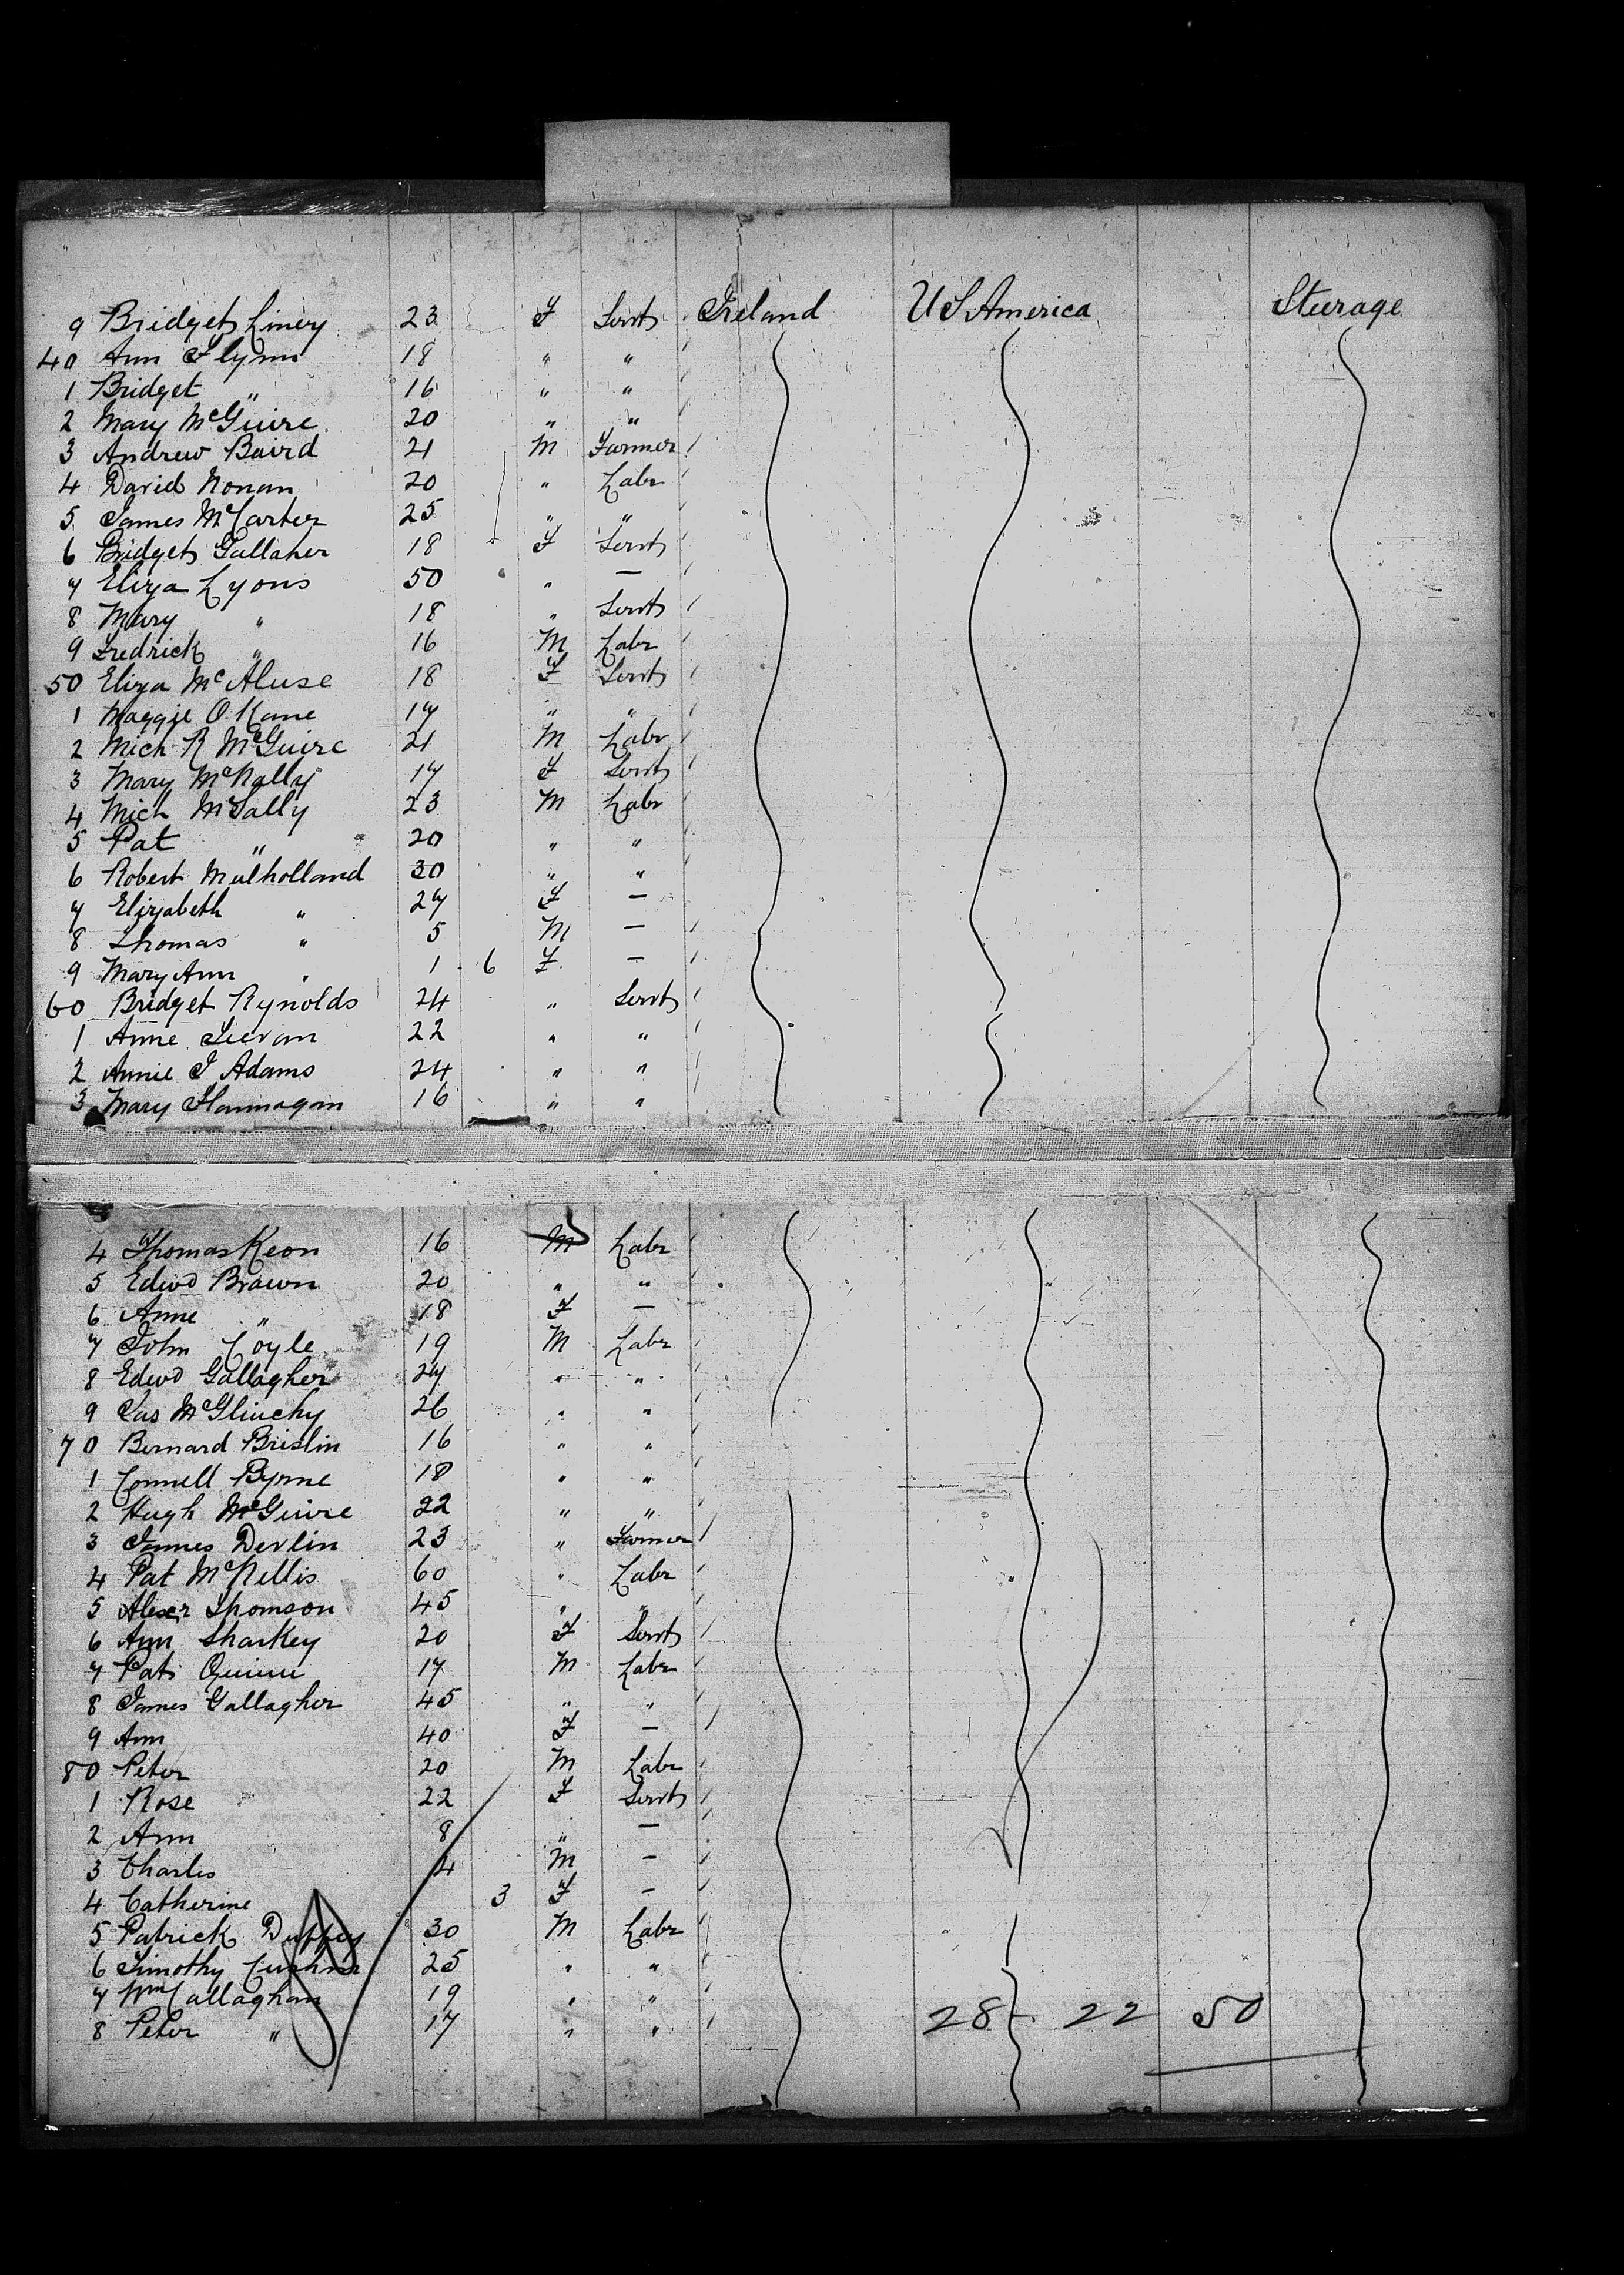 Ireland U S America Steerage
9 Bridget Linery 23 F Servt
40 Ann Flynn 18 " "
1 Bridget " 16 " "
2 Mary McGuire 20 " "
3 Andrew Baird 21 M Farmer
4 David Nonan 20 " Labr
5 James McCarter 25 " "
6 Bridget Gallaher 18 F Servt
7 Eliza Lyons 50 " —
8 Mary " 18 " Servt
9 Fredrick " 16 M Labr
50 Eliza McAluse 18 F Servt
1 Maggie O Kane 17 " "
2 Mich R McGuire 21 M Labr
3 Mary McNally 17 F Servt
4 Mich McSally 23 M Labr
5 Pat " 20 " "
6 Robert Mulholland 30 " "
7 Elizabeth " 27 F —
8 Thomas " 5 M —
9 Mary Ann " 1 6 F —
60 Bridget Rynolds 24 " Servt
1 Anne 22 " "
2 Annie J Adams 24 " "
3 Mary Flannagan 16 " "
4 Thomas Keon 16 M Labr
5 Edwd Brawn 20 " "
6 Anne " 18 F —
7 John Coyle 19 M Labr
8 Edwd Gallagher 27 " "
9 Jas McGlinchy 26 " "
70 Bernard Brislin 16 " "
1 Connell Byrne 18 " "
2 Hugh McGuire 22 " "
3 James Devlin 23 " Farmer
4 Pat McNellis 60 " Labr
5 Alexr Thomson 45 " "
6 Ann Sharkey 20 F Servt
7 Pat Quinn 17 M Labr
8 James Gallagher 45 " "
9 Ann 40 F —
80 Peter 20 M Labr
1 Rose 22 F Servt
2 Ann 8 " —
3 Charles 4 M —
4 Catherine 3 F —
5 Patrick Duffey 30 M Labr
6 Timothy 25 " "
7 Wm Callaghan 19 " "
8 Peter " 17 " " 28 22 50